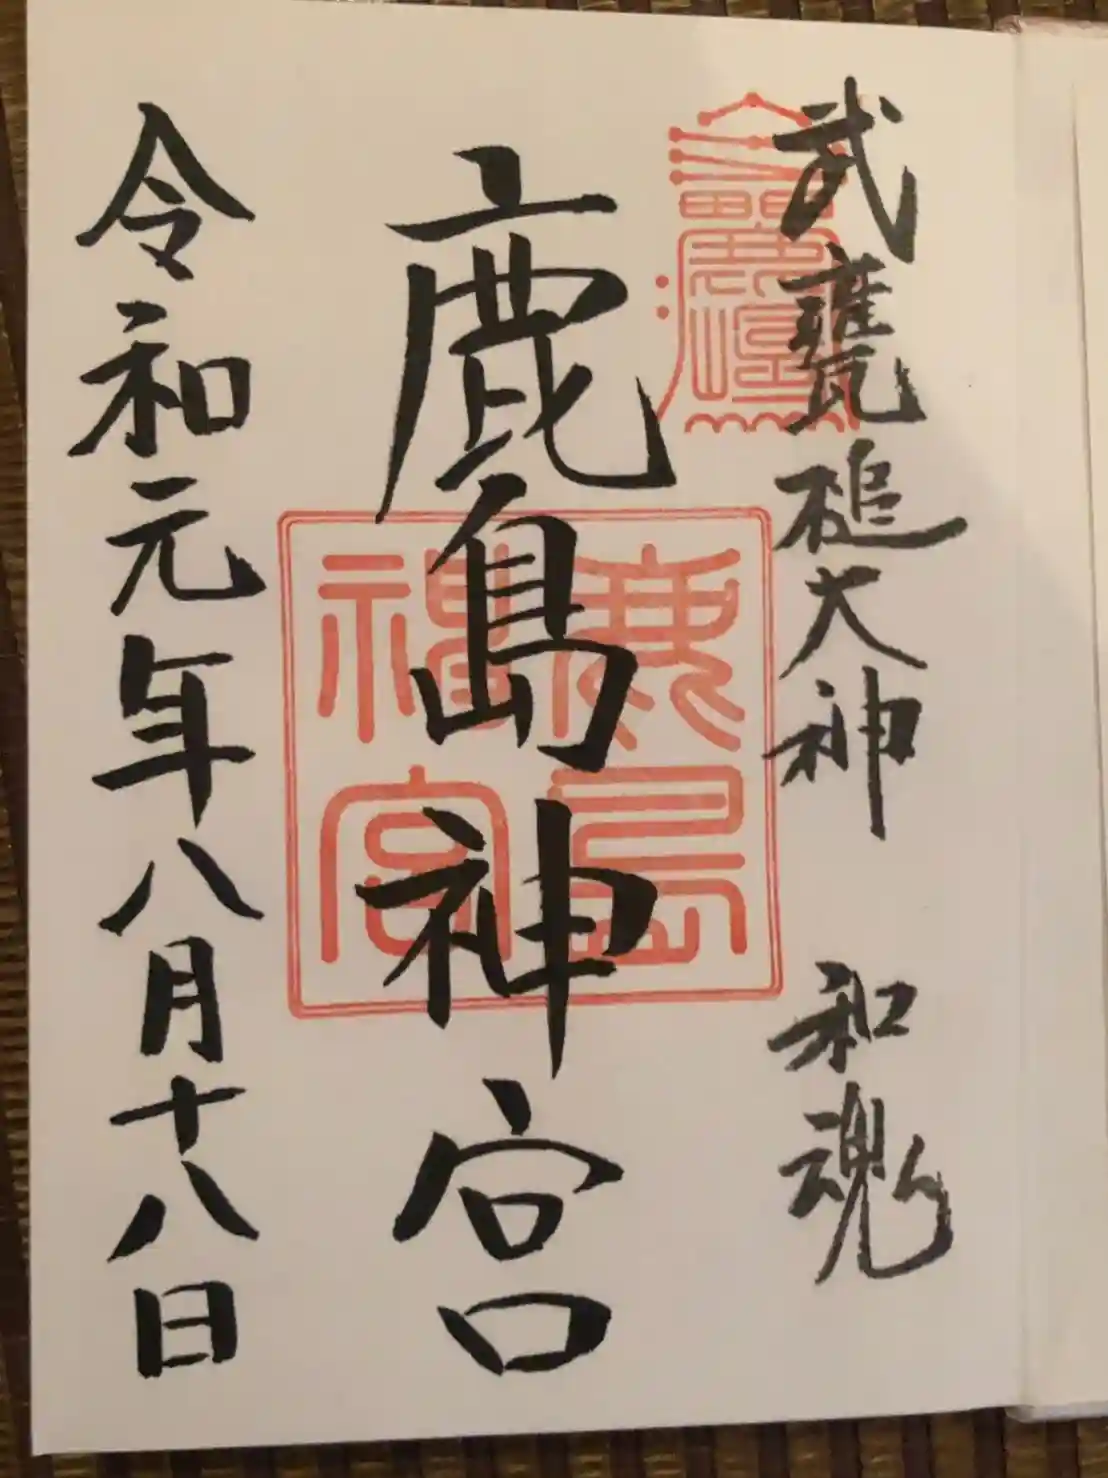 武甕槌大神 和魂
鹿島神宮
令和元年八月十八日
鹿島
神宮